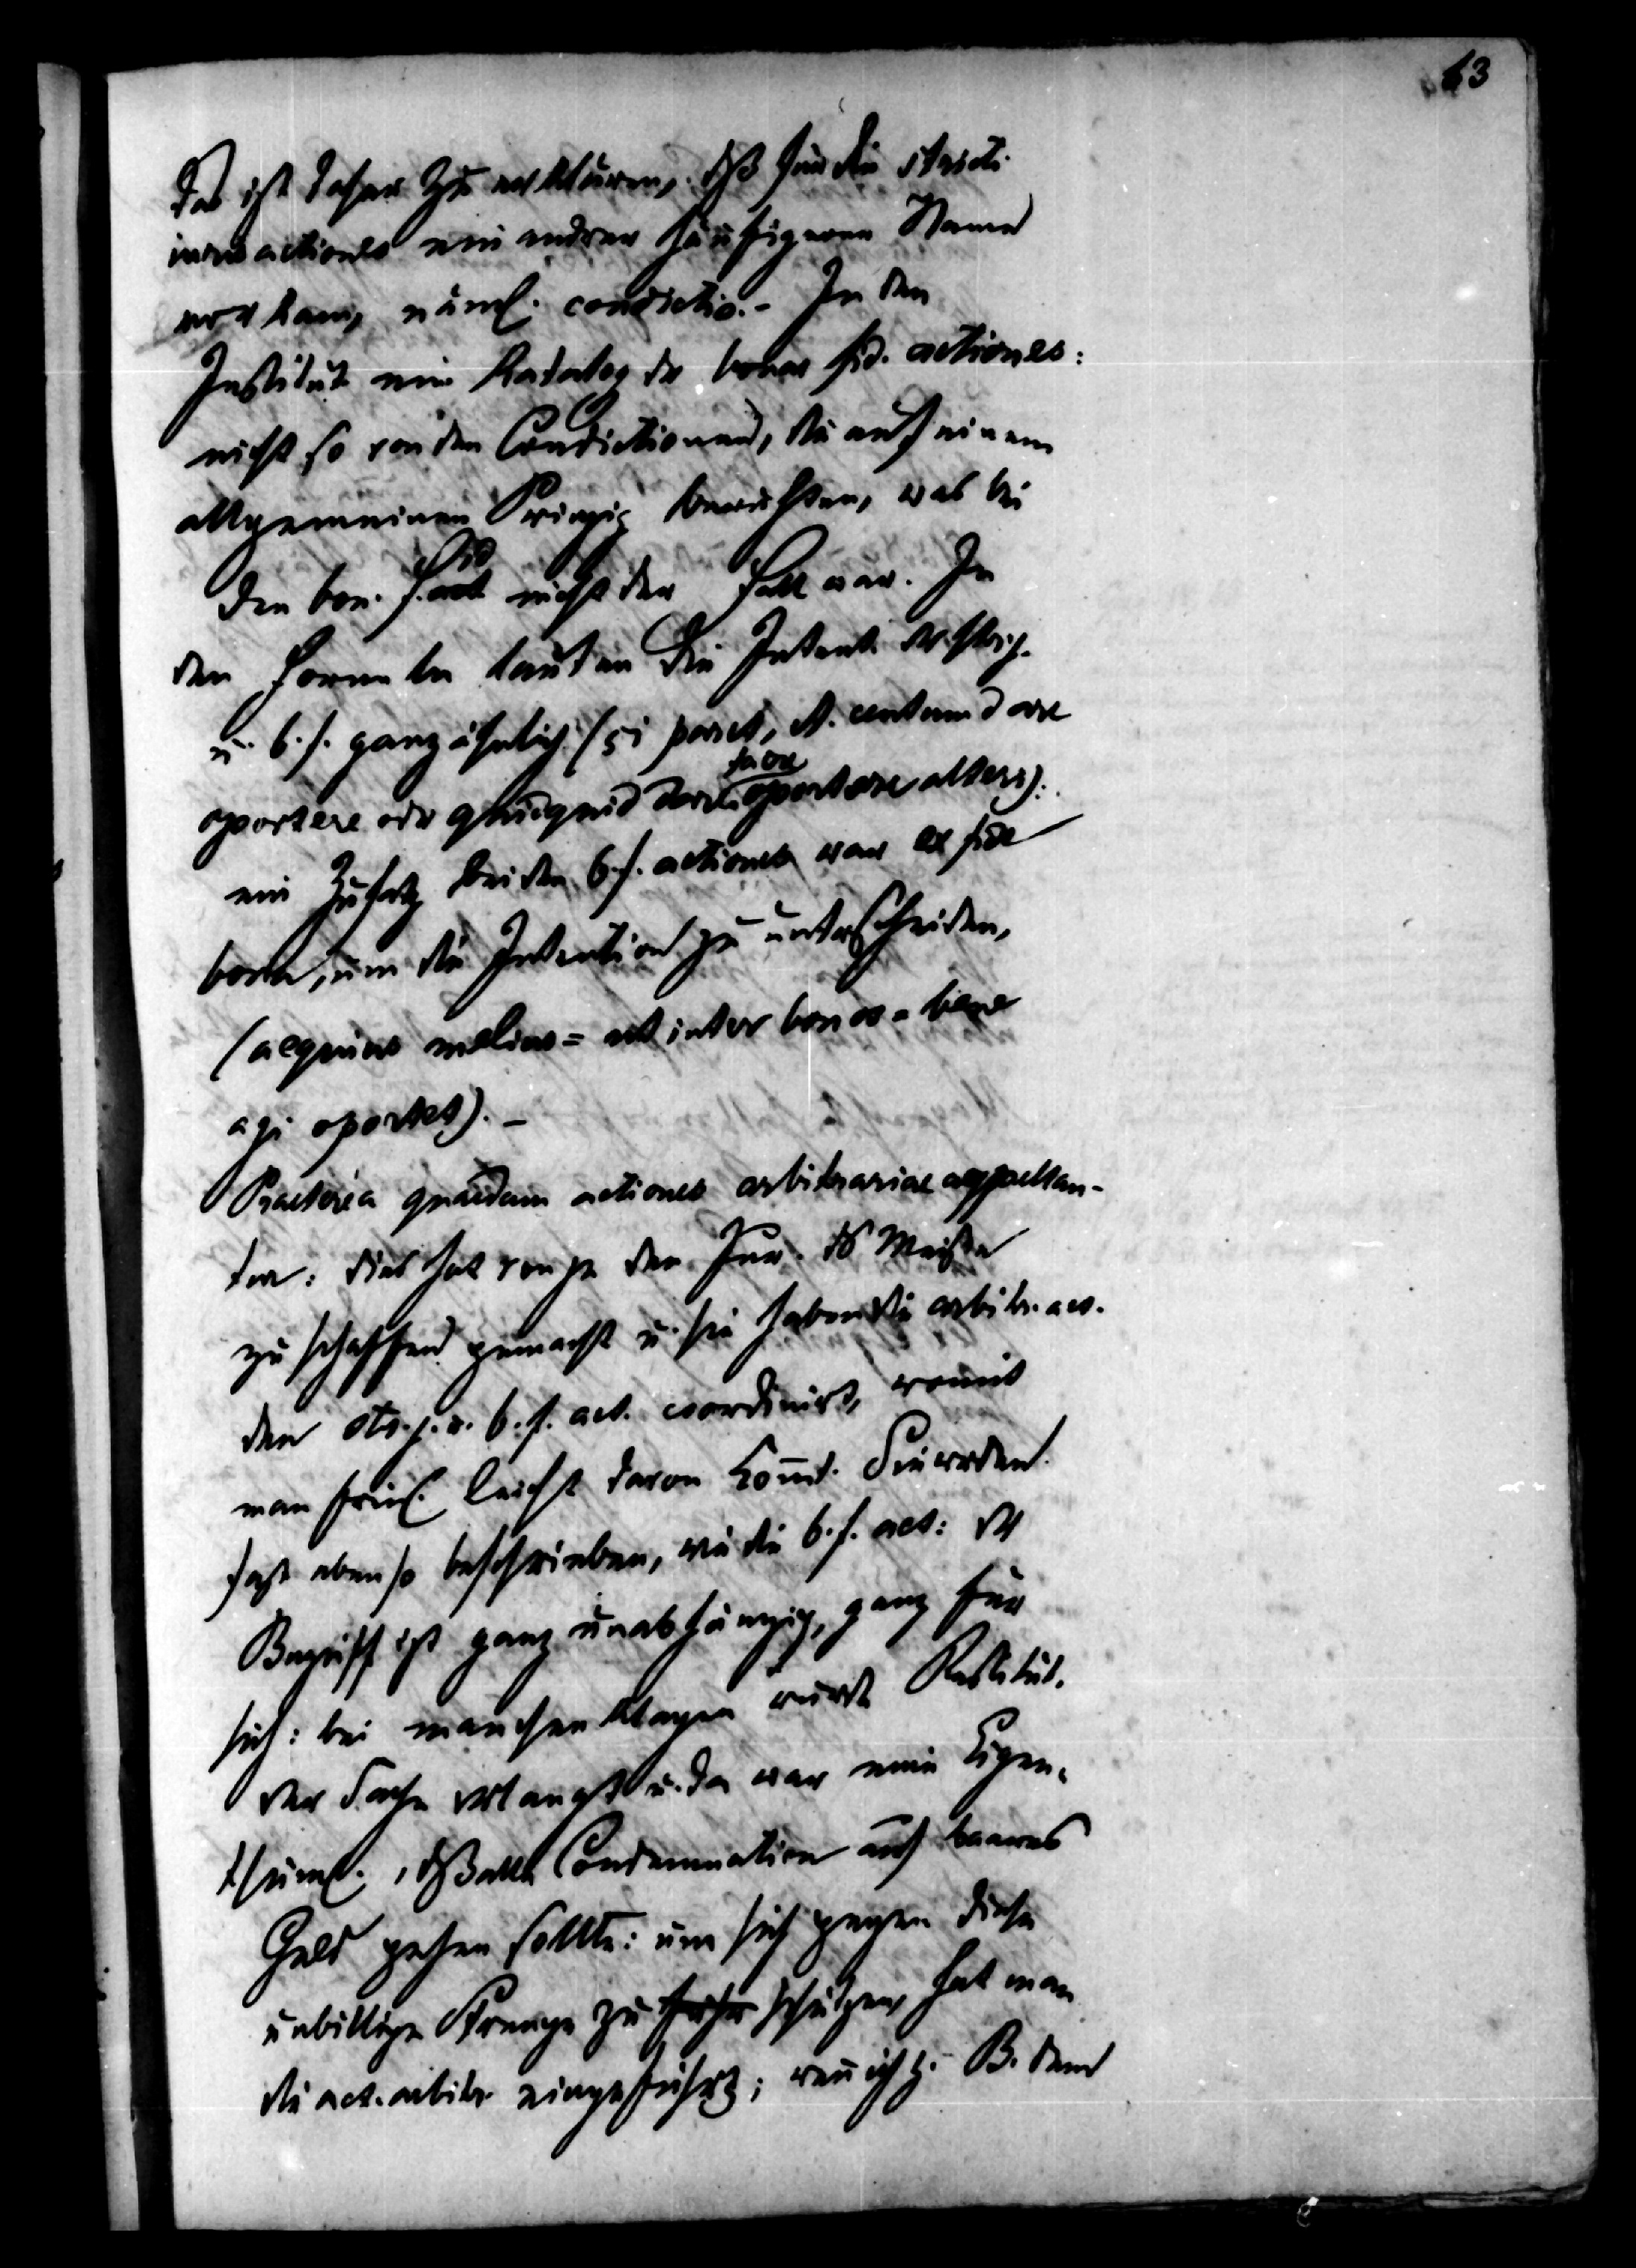 63
Das ist daher zu erklären, dß für die stricti
iuris actiones ein andrer häufigerer Name
vorkam, näml. condictio. - In den
Institut. ein Katalog der bonae fid. actiones:
nicht so von den Condictionen, die auf einem
allgemeinen Prinzip beruhten, was bei
den bon. fid. act. nicht der Fall war. In
den Formeln lauten die Intent. der strig.
u. b. f. ganz ähnlich (si paret, A. centum dare
oportere oder quidquid dare facere oportere alteri):
ein Zusatz bei den b. f. actiones war ex fide
bona, um die Intention zu unterscheiden,
(aequius melius = ut inter bonos - bene
agi oportet). -
Praeterea quaedam actiones arbitrariae appellan-
tur: dies hat von je den Jur. ds Meiste
zu schaffen gemacht u. sie haben die arbitr. act.
den str. j. u. b. f. act. coordinirt, womit
man freil. leicht davon kommt. Sie werden
fast ebenso beschrieben, wie die b. f. act: der
Begriff ist ganz unabhängig, ganz für
sich: bei manchen Klagen wurde Restitut.
der Sache verlangt u. da war eine Eigen-
thüml., dß alle Condemnation auf baares
Geld gehen sollte: um sich gegen diese
unbillige Strenge zu schützen, hat man
die act. arbitr. eingeführt; wenn ich z. B. dem